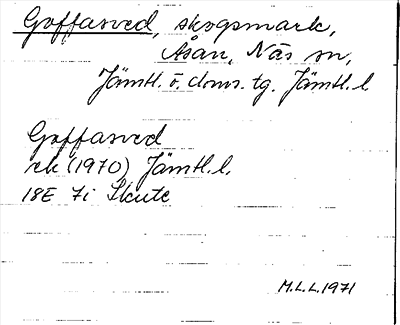 Goffasved, skogsmark,
Åsan, Näs sn,
Jämtl. ö. doms. tg. Jämtl. l
Goffasved
rek (1970) Jämtl. l.
18E 7i Skute
M.L.L. 1971